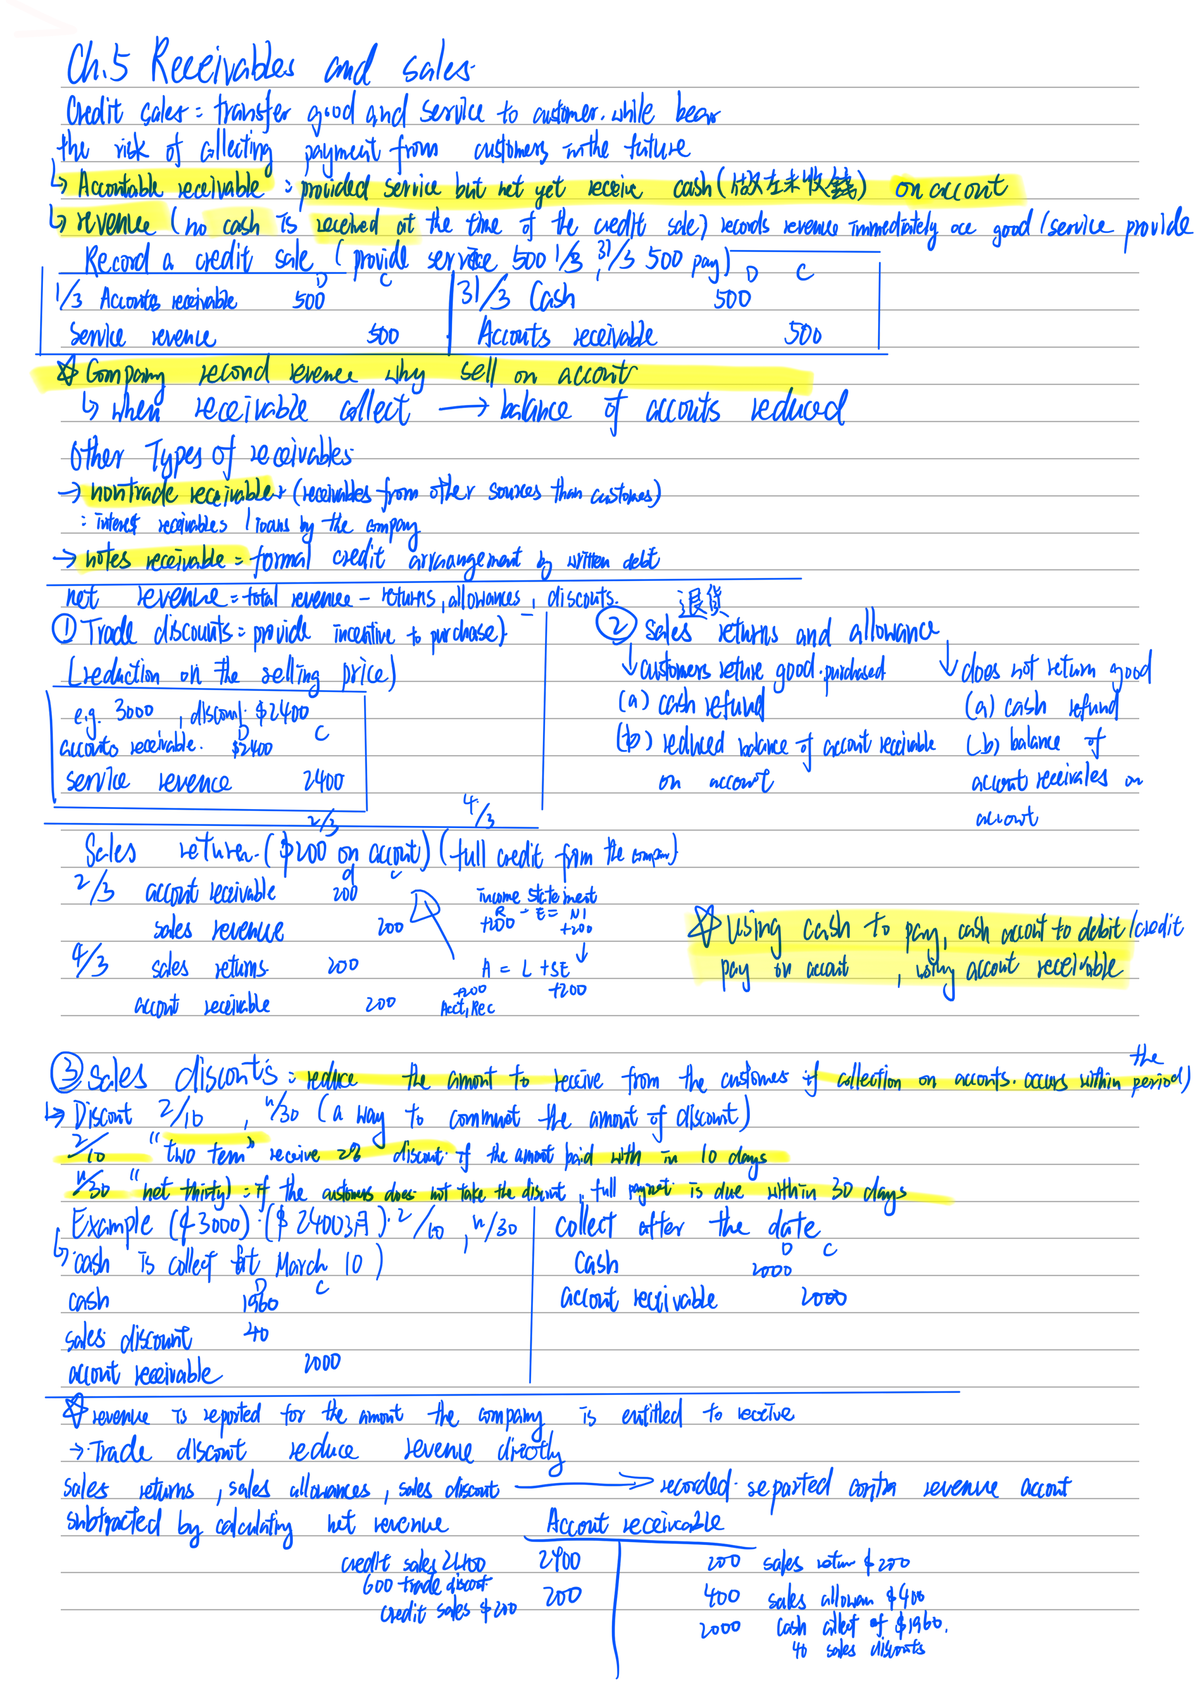 Ch.5 Receivables and sales.
Credit sales = transfer good and service to customer. while bear
the risk of collecting payment from customers in the future
↳ Accountable receivable = provided service but not yet receive cash (做左未收錢) on accout
↳ revenue (no cash is received at the time of the credit sale) records revenue immediately ace good / service provide
Record a credit sale (provide service 500 1/3, 31/3 500 pay)
D C D C
1/3 Accouts receivable 500 31/3 Cash 500
Service revenue 500 Accouts receivable 500
☆ Company record revenue why sell on accout
↳ when receivable collect → balance of accouts reduced
Other Types of receivables
→ nontrade receivable: (receivables from other sources than customes)
: interest receivables / loans by the company
→ notes receivable = formal credit arraangement by written debt
net revenue = total revenue - returns, allowances, discouts. 退貨
① Trade discounts = provide incentive to purchase)
(reduction on the selling price)
e.g. 3000, discout $2400
D C
accouts receivable. $2400
service revenue 2400
② Sales returns and allowance
↓ customers returne good purchased ↓ does not return good
(a) cash refund (a) cash refund
(b) reduced balance of accout receivable (b) balance of
on accout accout receivales on
accout
2/3 4/3
Sales returen. ($200 on accout) (full credit from the company)
d c
2/3 accout receivable 200
sales revenue 200
4/3 sales returns 200
accout receivable 200
income statement
R - E = NI
+200 +200
A = L + SE
+200 +200
Acct, Rec
☆ Using cash to pay, cash accout to debit/credit
pay on accout, using accout receivable
③ Sales discont's = reduce the amont to receive from the customes if collection on acconts. occurs within the period)
↳ Discont 2/10, n/30 (a way to communt the amont of discont)
2/10 "two ten" receive 2% discout if the amoot paid with in 10 days
n/30 "net thirty) = if the customers does not take the discout, full paymet is due within 30 days
Example ($3000) · ($2400 3月) · 2/10, n/30
↳ cash is collect at March 10)
D C
cash 1960
sales discount 40
accout receivable 2000
collect after the date
D C
Cash 2000
accout receivable 2000
☆ revenue is reported for the amont the company is entitled to receive
→ Trade discont reduce revenue directly
sales returns, sales allowances, sales discout → recorded separted contra revenue accout
subtracted by calculating net revenue
Accout receivcable
credit sales 2400 2400 200 sales return $200
600 trade discout
credit sales $200 200 400 sales allowan $400
2000 cash collect of $1960.
40 sales discouts